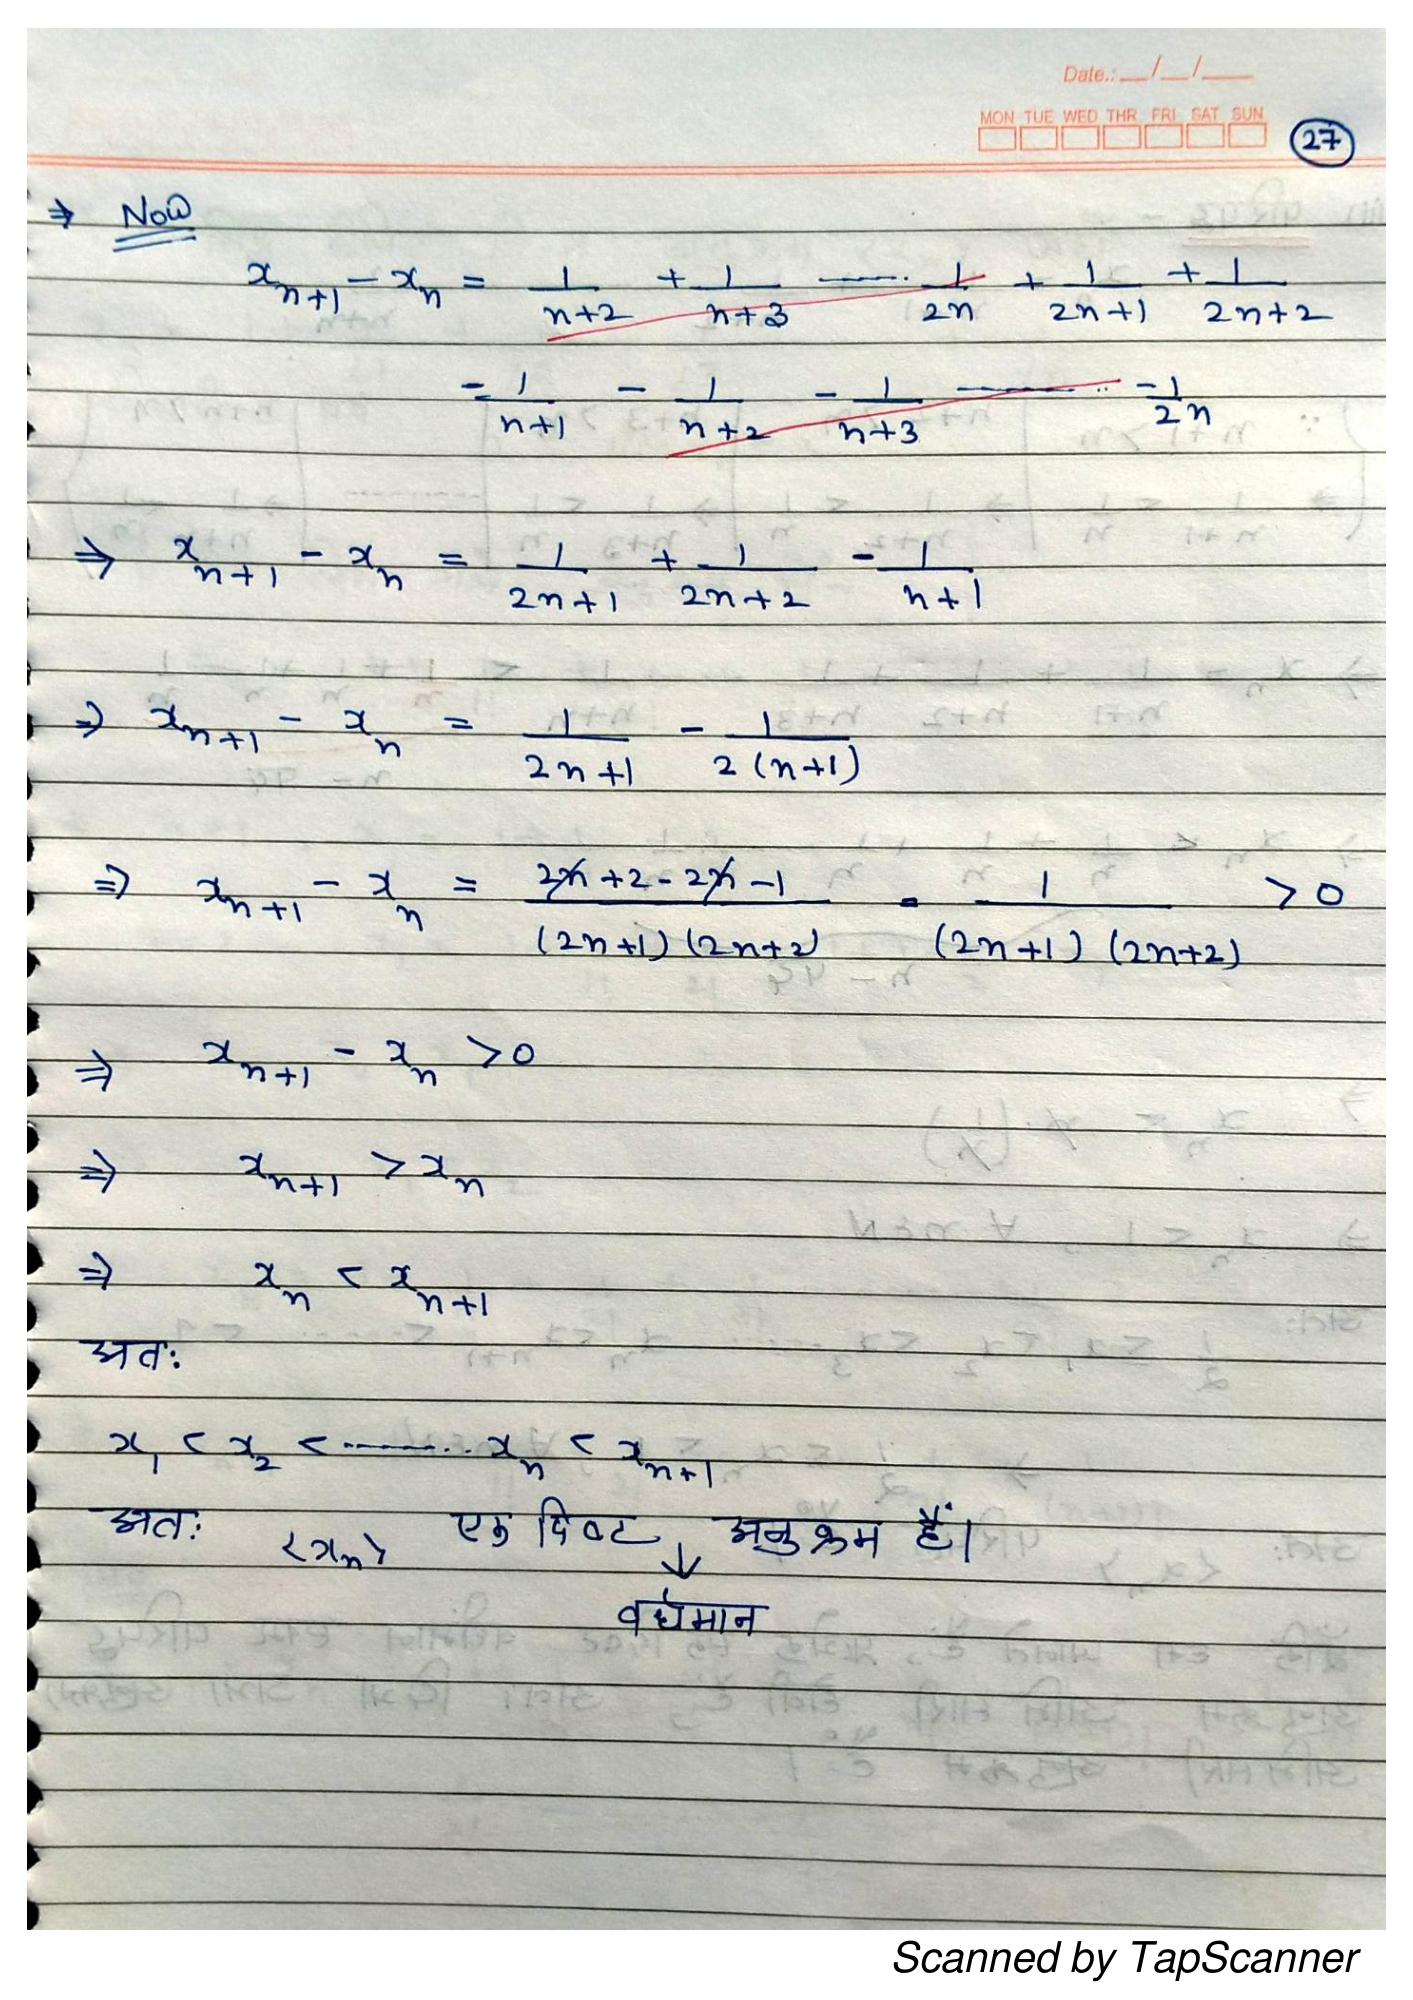 Date.: __/__/__
MON TUE WED THR FRI SAT SUN
27
⇒ Now
x_{n+1} - x_n = 1/(n+2) + 1/(n+3) ------ 1/2n + 1/(2n+1) + 1/(2n+2)
- 1/(n+1) - 1/(n+2) - 1/(n+3) -------- - 1/2n
⇒ x_{n+1} - x_n = 1/(2n+1) + 1/(2n+2) - 1/(n+1)
⇒ x_{n+1} - x_n = 1/(2n+1) - 1/(2(n+1))
⇒ x_{n+1} - x_n = (2n+2-2n-1)/((2n+1)(2n+2)) = 1/((2n+1)(2n+2)) > 0
⇒ x_{n+1} - x_n > 0
⇒ x_{n+1} > x_n
⇒ x_n < x_{n+1}
अतः
x_1 < x_2 < -------- x_n < x_{n+1}
अतः <x_n> एक दिष्ट अनुक्रम हैं।
↓
वर्धमान
Scanned by TapScanner